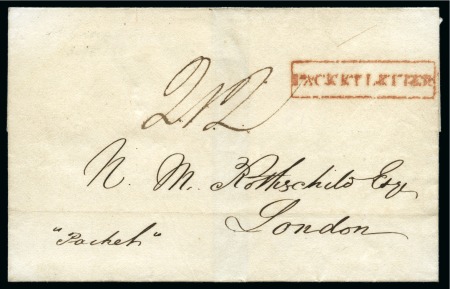 PACKET LETTER
2/2
N. M. Rothschild Esq
London
"Packet"